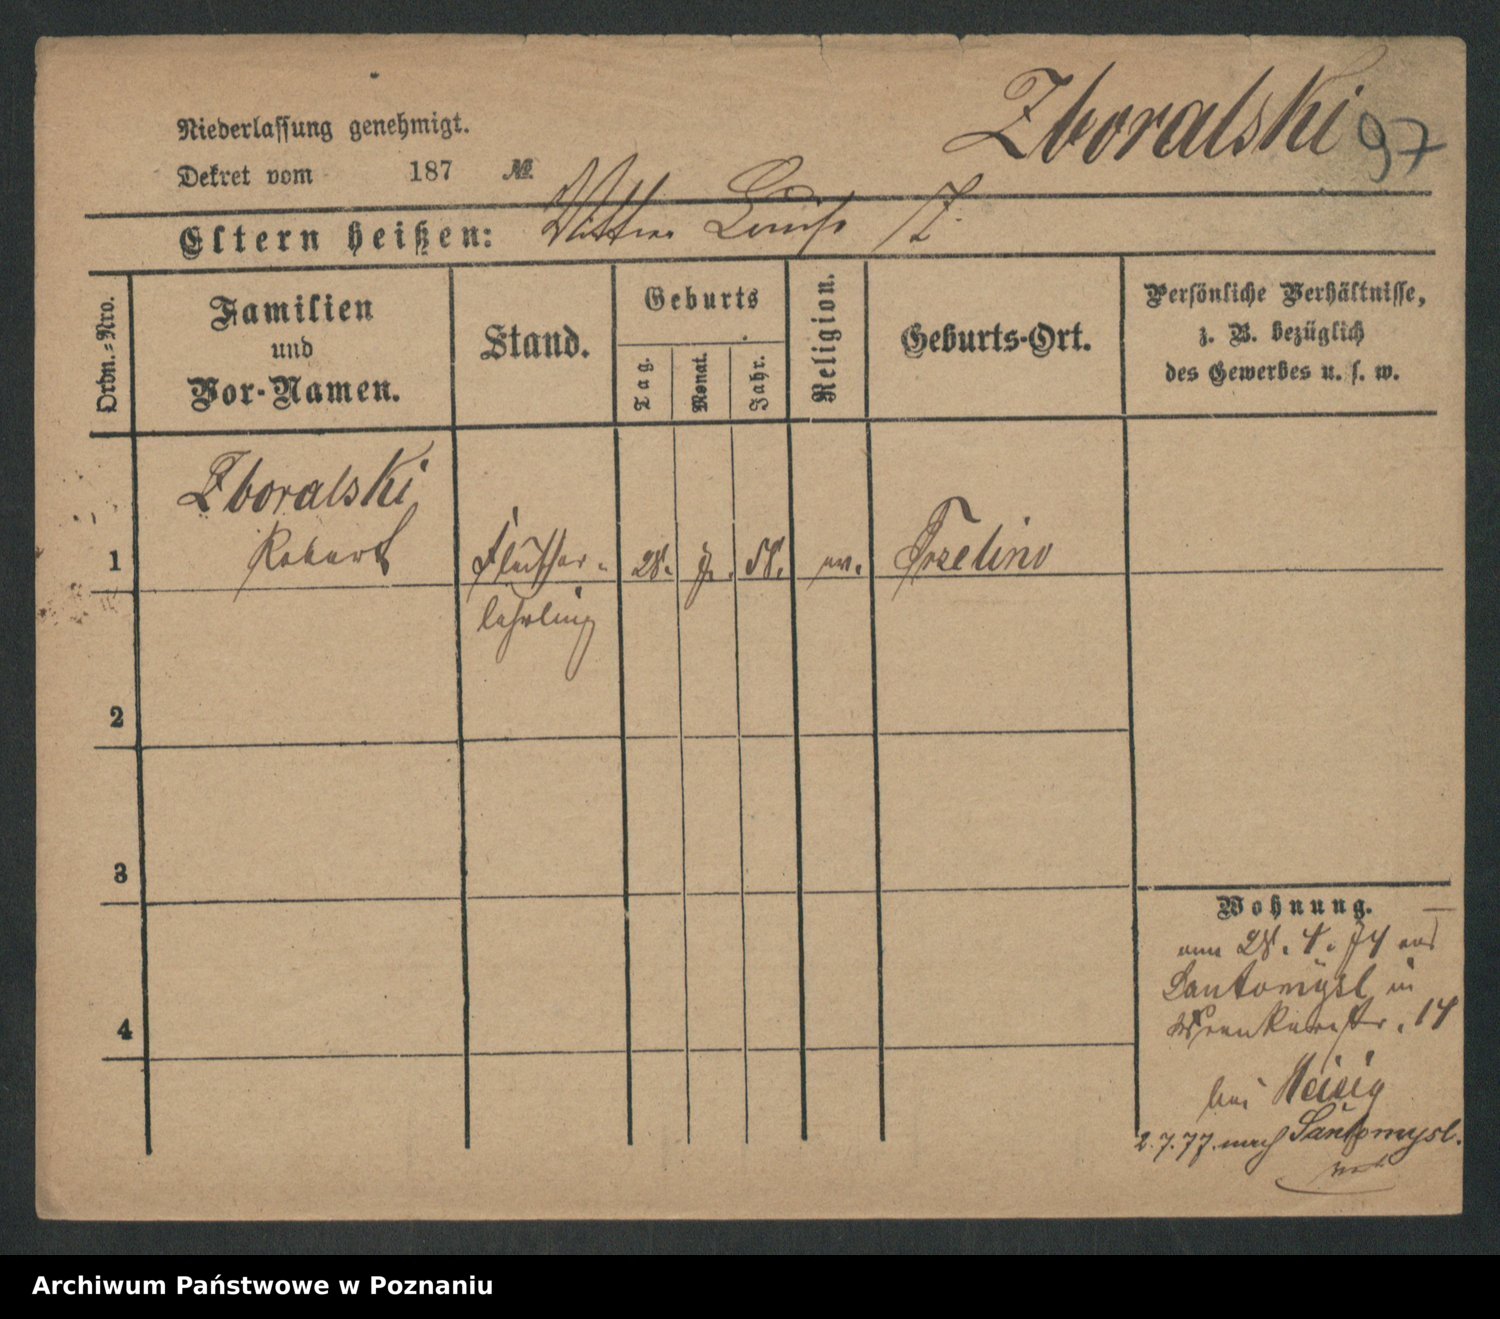 Zboralski 97
Niederlassung genehmigt.
Dekret vom 187 №
Eltern heißen: Mutter Louise Z.
Ordn.-Nro.
Familien
und
Vor-Namen.
Stand.
Geburts
Tag.
Monat.
Jahr.
Religion.
Geburts-Ort.
Persönliche Verhältnisse,
z. B. bezüglich
des Gewerbes u. s. w.
Zboralski
1 Robert 28. 58. ev.
lehrling
2
3
4
Wohnung.
28. 4. 74 aus
Santomysl in
14
bei
2.7.77. nach Santomysl.
Archiwum Państwowe w Poznaniu